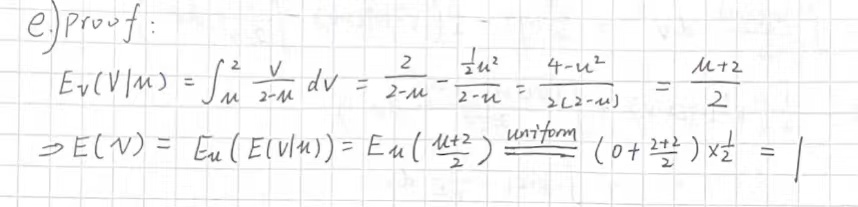 e.) Proof:
E_v(V|u) = ∫_u^2 v/(2-u) dv = 2/(2-u) - (1/2 u^2)/(2-u) = (4-u^2)/(2(2-u)) = (u+2)/2
⇒ E(V) = E_u(E(V|u)) = E_u((u+2)/2) \xlongequal{uniform} (0 + (2+2)/2) × 1/2 = 1